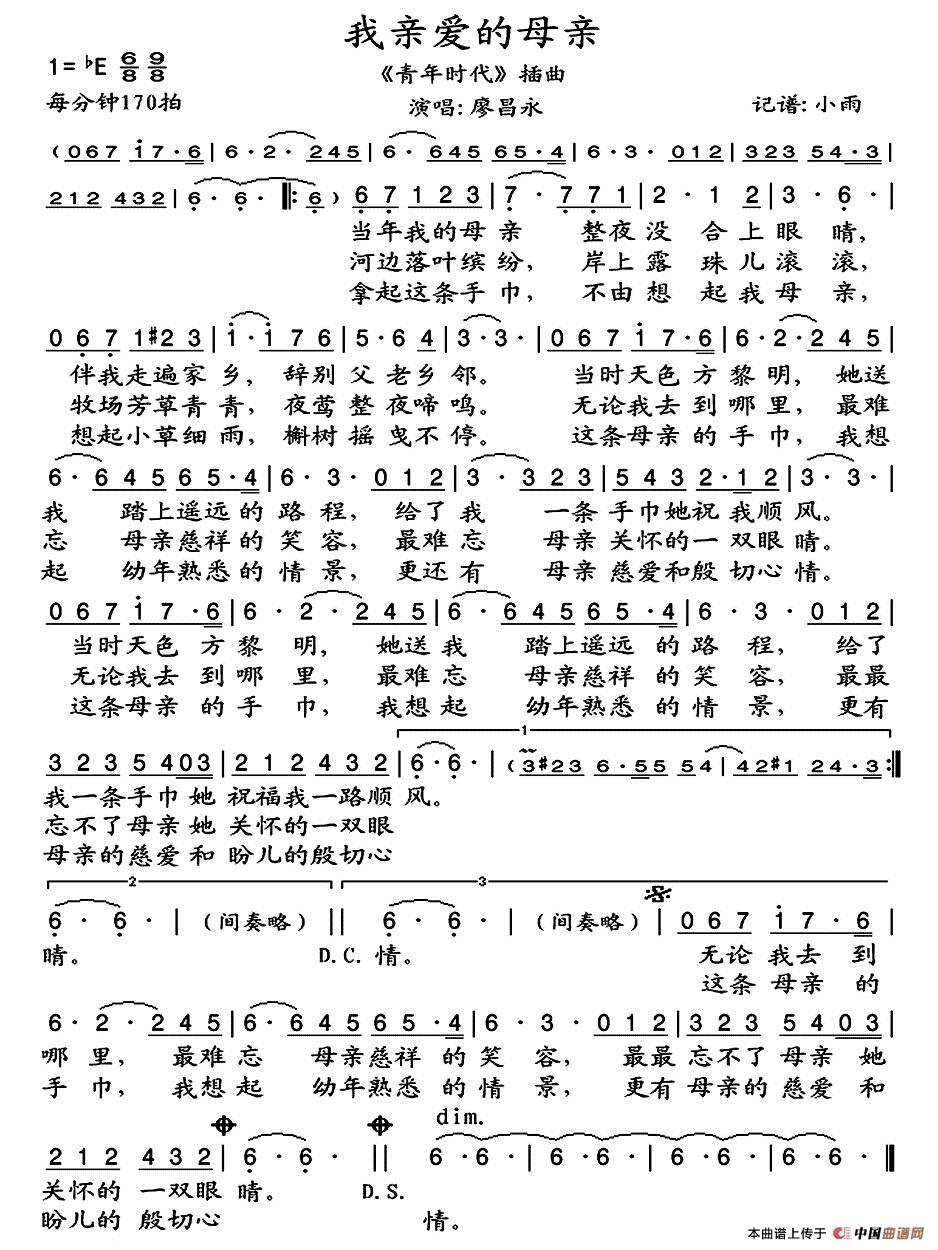 我亲爱的母亲
1=♭E 6/8 9/8
《青年时代》插曲
每分钟170拍
演唱:廖昌永
记谱:小雨
(067 i7·6|6·2· 245|6· 645 65·4|6·3· 012|323 54·3|
212 432|6· 6· 𝄆 6) 67 123|7· 771|2·12|3·6·|
当年我的母亲 整夜没合上眼晴,
河边落叶缤纷, 岸上露珠儿滚滚,
拿起这条手巾, 不由想起我母亲,
067 1#23|i·i76|5·64|3·3·|067 i7·6|6·2·245|
伴我走遍家乡, 辞别父老乡邻。 当时天色方黎明, 她送
牧场芳草青青, 夜莺整夜啼鸣。 无论我去到哪里, 最难
想起小草细雨, 槲树摇曳不停。 这条母亲的手巾, 我想
6·645 65·4|6·3·012|3·323|543 2·12|3·3·|
我 踏上遥远的路程, 给了我 一条手巾她祝我顺风。
忘 母亲慈祥的笑容, 最难忘 母亲关怀的一双眼晴。
起 幼年熟悉的情景, 更还有 母亲慈爱和殷切心情。
067 i7·6|6·2·245|6·645 65·4|6·3·012|
当时天色方黎明, 她送我 踏上遥远的路程, 给了
无论我去到哪里, 最难忘 母亲慈祥的笑容, 最最
这条母亲的手巾, 我想起 幼年熟悉的情景, 更有
1
323 5403|212 432|6·6·|(3#23 6·55 54|42#1 24·3:‖
我一条手巾她祝福我一路顺风。
忘不了母亲她关怀的一双眼
母亲的慈爱和盼儿的殷切心
2 3
6·6·|(间奏略)‖6·6·|(间奏略)|067 i7·6|
晴。 D.C. 情。 无论我去到
这条母亲的
6·2·245|6·645 65·4|6·3·012|323 5403|
哪里, 最难忘 母亲慈祥的笑容, 最最忘不了母亲她
手巾, 我想起 幼年熟悉的情景, 更有母亲的慈爱和
dim.
212 432|6·6·‖6·6·|6·6·|6·6·|6·6·‖
关怀的一双眼晴。 D.S.
盼儿的殷切心 情。
本曲谱上传于 中国曲谱网